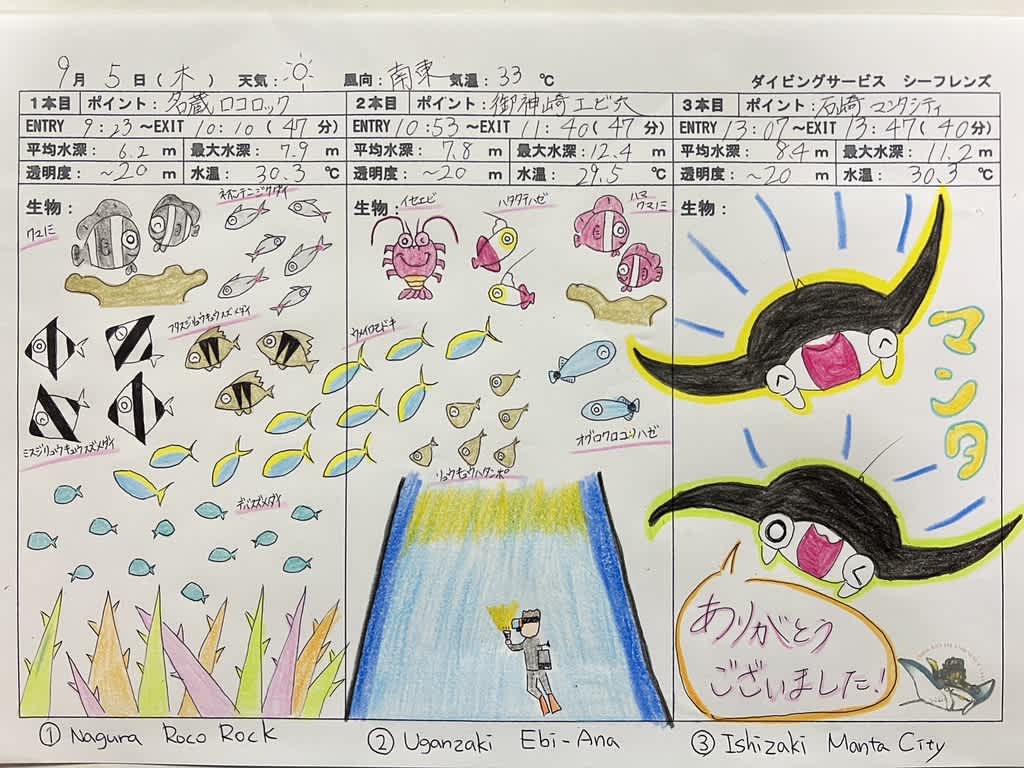 9月 5日(木) 天気: 風向:南東 気温:33℃
ダイビングサービス シーフレンズ
1本目 ポイント:名蔵ロコロック
ENTRY 9:23~EXIT 10:10(47分)
平均水深: 6.2 m 最大水深: 7.9 m
透明度: ~20 m 水温: 30.3 ℃
生物:
クマノミ
ネオンテンジクダイ
フタスジリュウキュウスズメダイ
ミスジリュウキュウスズメダイ
デバスズメダイ
2本目 ポイント:御神崎エビ穴
ENTRY 10:53~EXIT 11:40(47分)
平均水深: 7.8 m 最大水深: 12.4 m
透明度: ~20 m 水温: 29.5 ℃
生物:
イセエビ
ハタタテハゼ
ハマ
クマノミ
ウメイロモドキ
オグロクロユリハゼ
リュウキュウハタンポ
3本目 ポイント:石崎マンタシティ
ENTRY 13:07~EXIT 13:47(40分)
平均水深: 8.4 m 最大水深: 11.2 m
透明度: ~20 m 水温: 30.3 ℃
生物:
マンタ
ありがとう
ございました!
① Nagura Roco Rock
② Uganzaki Ebi-Ana
③ Ishizaki Manta City